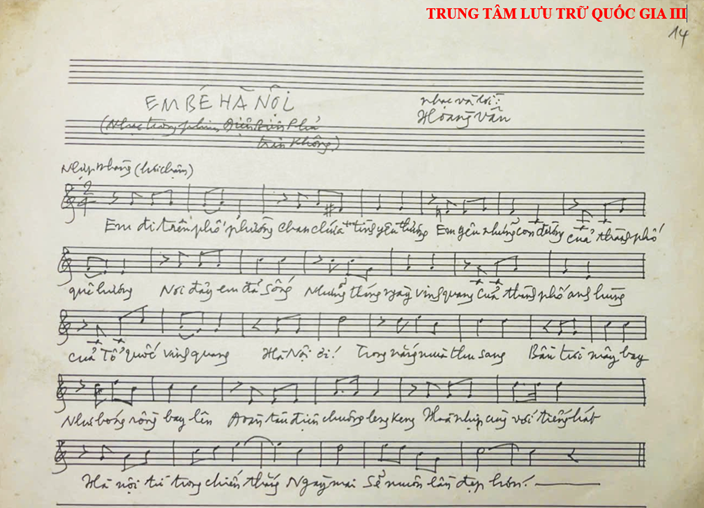 TRUNG TÂM LƯU TRỮ QUỐC GIA III
14
EM BÉ HÀ NỘI
nhạc và lời:
Hoàng Vân
(Nhạc trong phim Điện Biên Phủ
trên không)
Nhịp nhàng (hơi chậm)
2
4
Em đi trên phố phường chan chứa tiếng yêu thương Em yêu những con đường của thành phố
quê hương Nơi đây em đã sống Những tháng ngày vinh quang của thành phố anh hùng
của Tổ quốc vinh quang Hà Nội ơi! Trong nắng mùa thu sang Bầu trời mây bay
Như bóng rồng bay lên Đoàn tàu điện chuông leng keng Hoà nhịp cùng với tiếng hát
Hà nội từ trong chiến thắng Ngày mai sẽ muôn lần đẹp hơn!